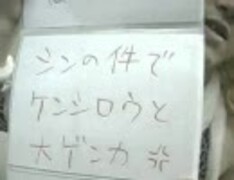 シンの件で
ケンシロウと
大ゲンカ💢